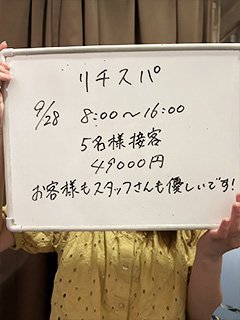 リチスパ
9/28 8:00〜16:00
5名様接客
49000円
お客様もスタッフさんも優しいです!